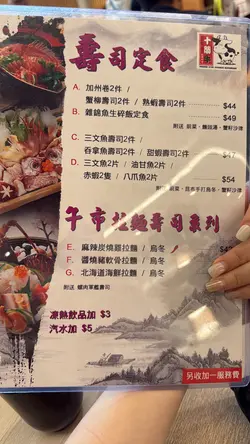 壽司定食
A: 加州卷2件 /
蟹柳壽司2件 / 熟蝦壽司2件 $44
B: 雜錦魚生碎飯定食 $49
附送 前菜、麵豉湯、蟹籽沙律
C: 三文魚壽司2件 /
吞拿魚壽司2件 / 甜蝦壽司2件 $47
D: 三文魚2片 / 油甘魚2片 /
赤蝦2隻 / 八爪魚2片 $54
午市拉麵壽司系列
E: 麻辣炊燒雞拉麵 / 烏冬
F: 醬燒豬軟骨拉麵 / 烏冬
G: 北海道海鮮拉麵 / 烏冬
附送 螺肉軍艦壽司
凍熱飲品加 $3
汽水加 $5
另收加一服務費